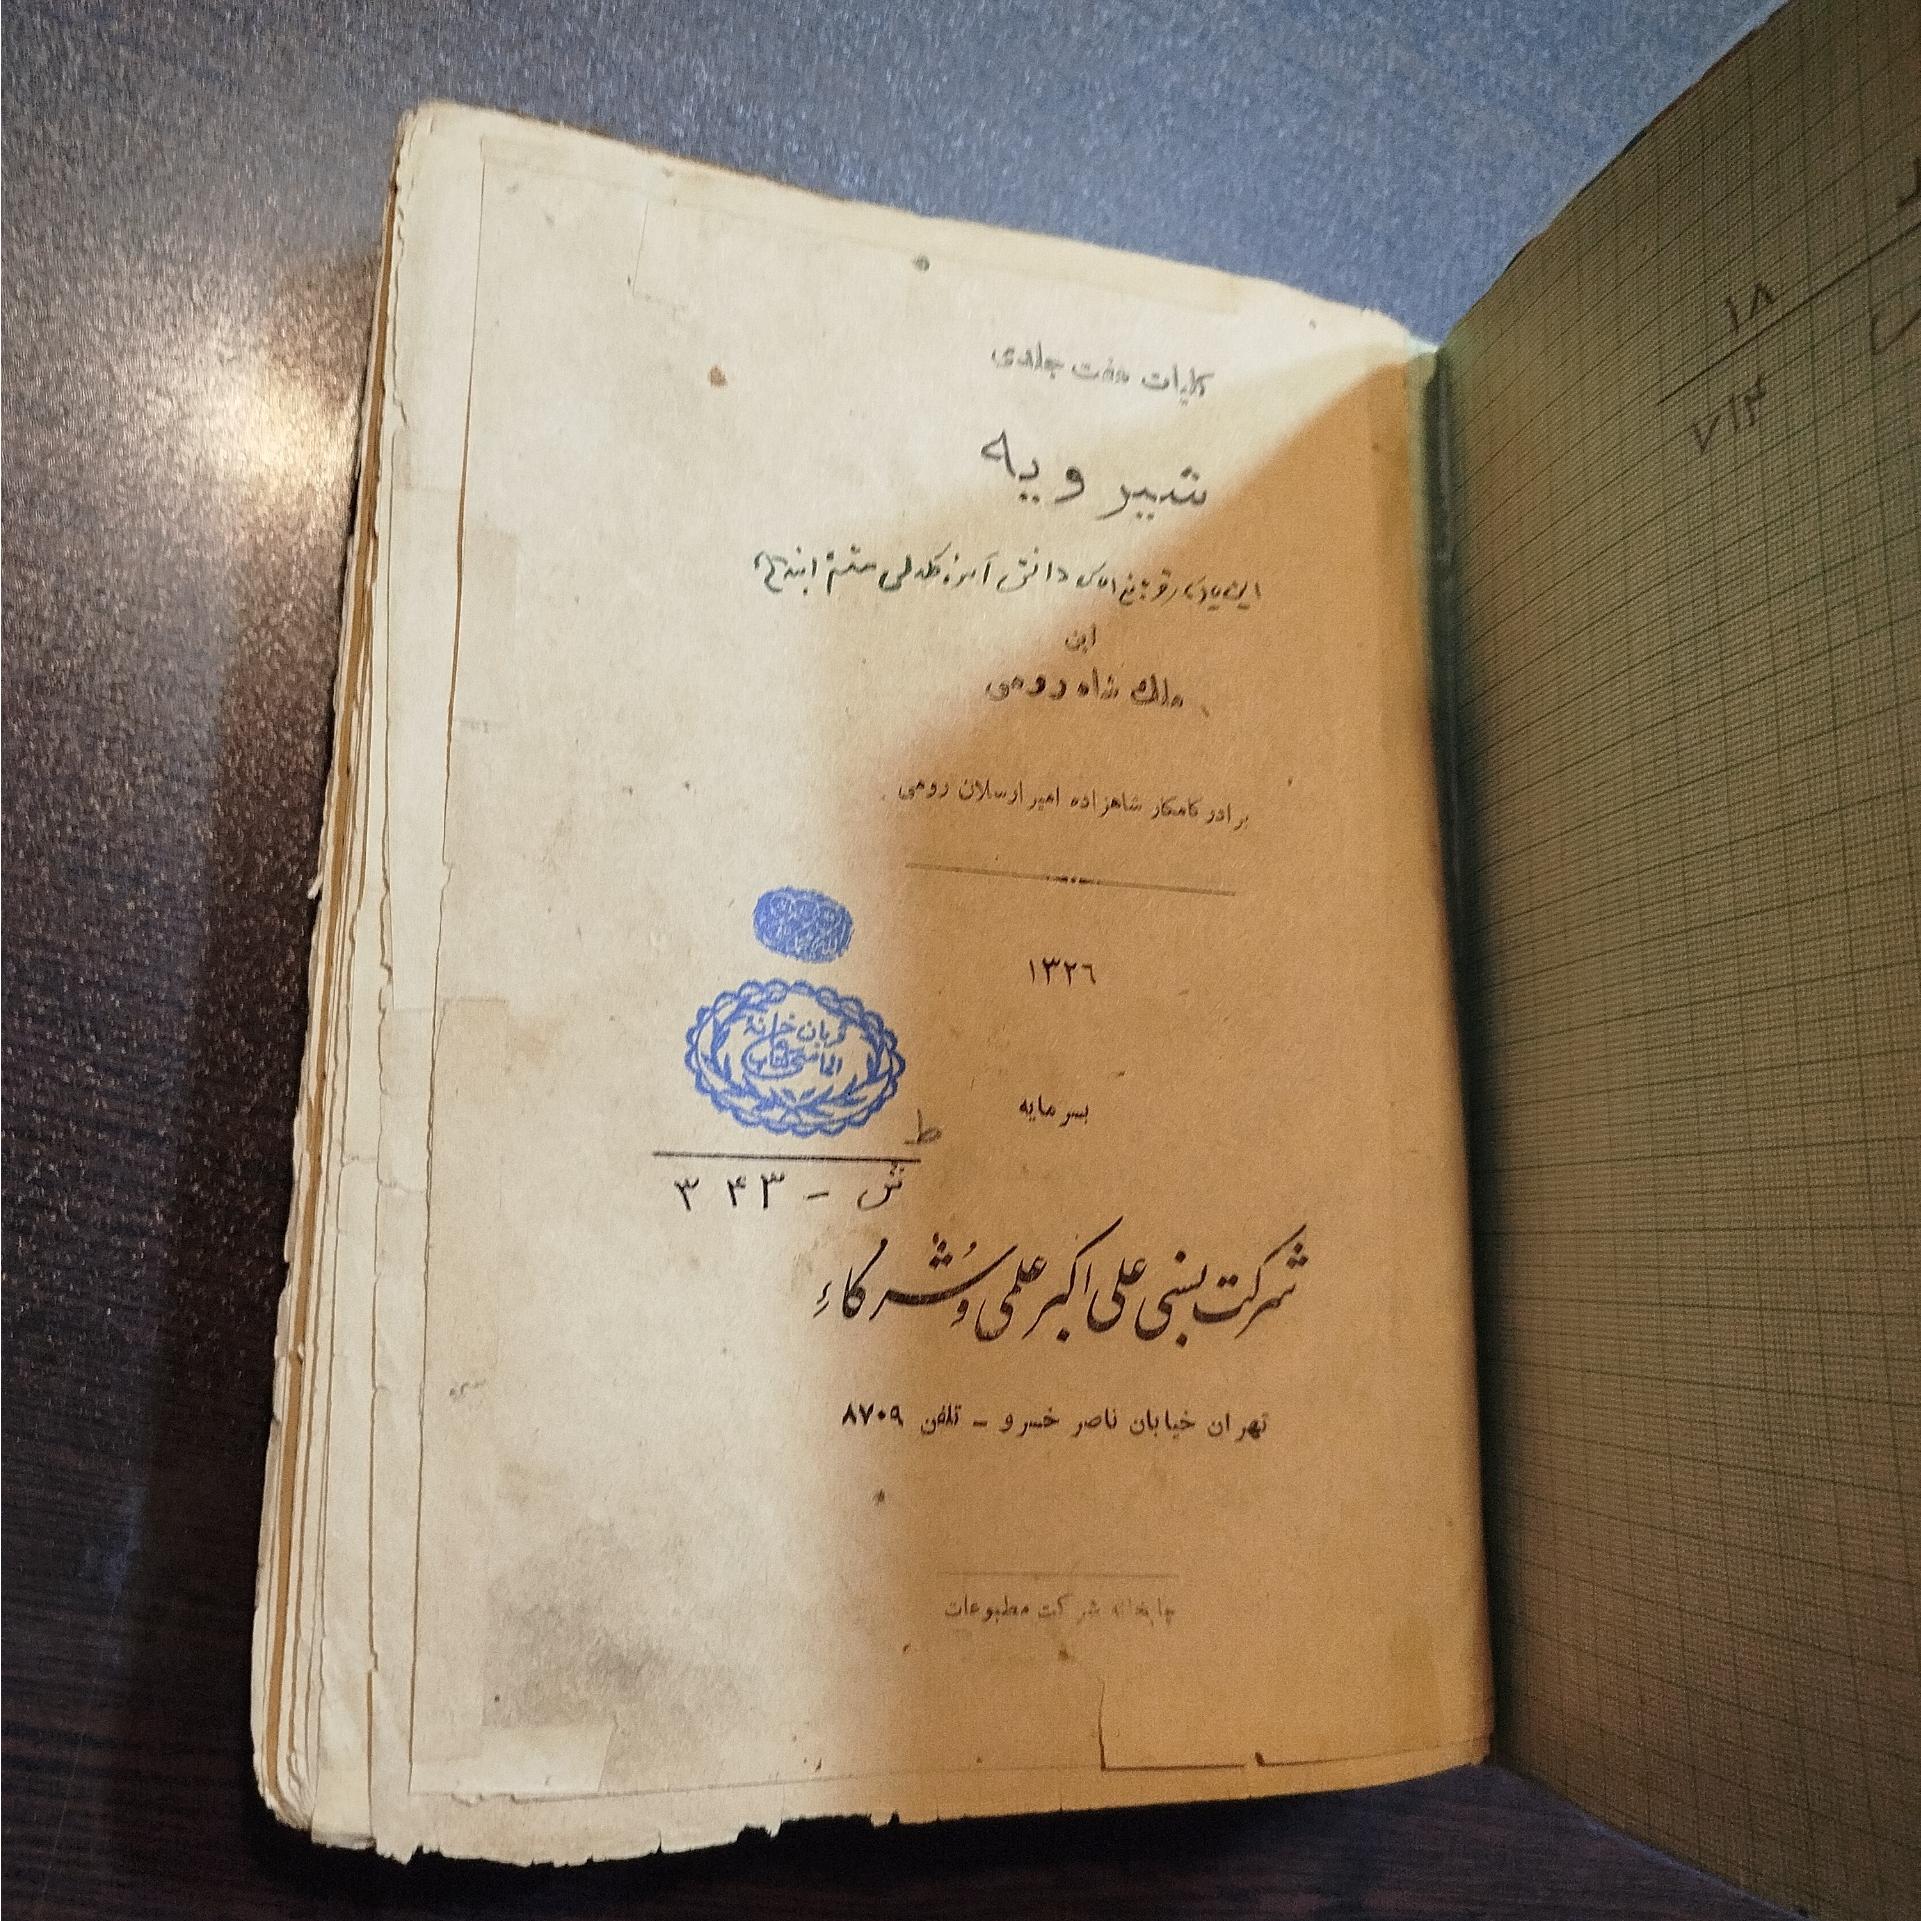 کلیات هفت جلدی
شیرویه
ابن
ملک شاه رومی
برادر کامکار شاهزاده امیر ارسلان رومی
۱۳۲۶
خانه
بسرمایه
ط
ش - ۳۴۳
شرکت نسبی علی اکبر علمی و شرکاء
تهران خیابان ناصر خسرو - تلفن ۸۷۰۹
چاپخانه شرکت مطبوعات
۱۸
۷۱۴